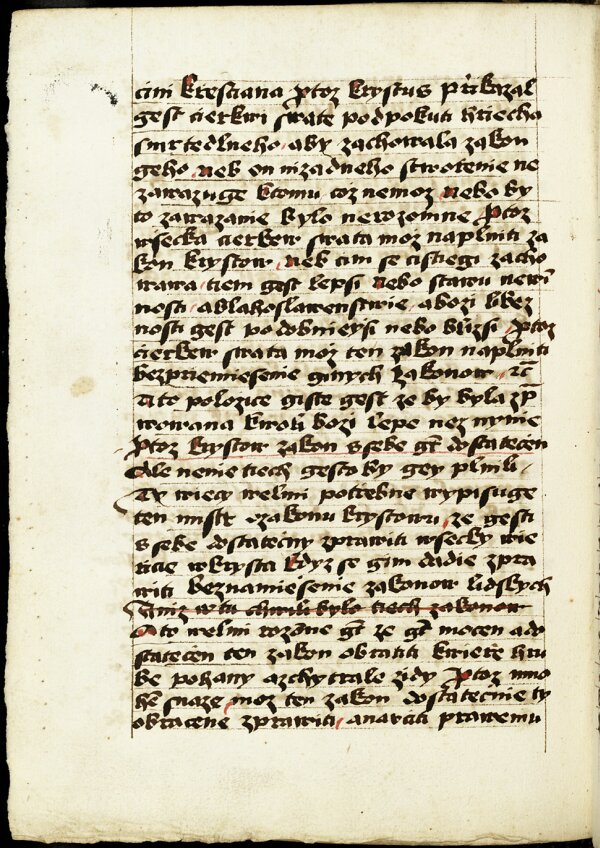 cini krestiana ꝓtoz krystus přikazal
gest cierkwi swate pod pokuti hriecha
smrtedlneho aby zachowala zakon
geho neb on nizadneho stworenie ne
zawazuge ktomu coz nemoz nebo by
to zawazanie bylo nerozomne ꝓtoz
wsecka cierkew swata moz naplniti za
kon krystow neb cim se cistiegi zacho
wawa tiem gest lepsi nebo stawu newi
nosti ablahoslawenstwie abozi libez
nosti gest podobnieyssi nebo blizsi ꝓtoz
cierkew swata moz ten zakon naplniti
bezpriemiesenie ginych zakonow
A to polozice giste gest ze by byla zp̄
wowana kwoli bozi lepe nez nynie
ꝓtoz krystow zakon w sebe gt dostatecen
Ale nenie tiech gesto by gey plnili
Ty wiecy welmi potrebne wypisuge
ten mistr ozakonu krystowu ze gest
w sebe dostatecny zprawiti wsecky wie
rice wkrysta kdyz se gim dadie zpra
witi beznamiesenie zakonow lidskych
Aniz wtu chwili bylo tiech zakonow
A to welmi gt ze gt mocen ado
statecen ten zakon obratiti kwiere hru
be pohany azchytrale zidy ꝓtoz mno
hem snaze moz ten zakon dostatecnie ty
obracene zprawiti anawrati prawemu